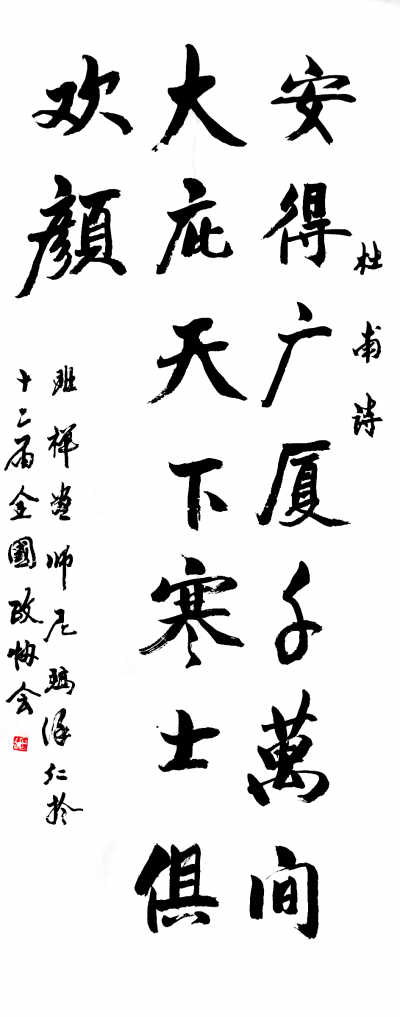 杜甫诗
安得广厦千萬间
大庇天下寒士俱
欢顔
班禅畫师尼玛泽仁於
十二届全國政协会